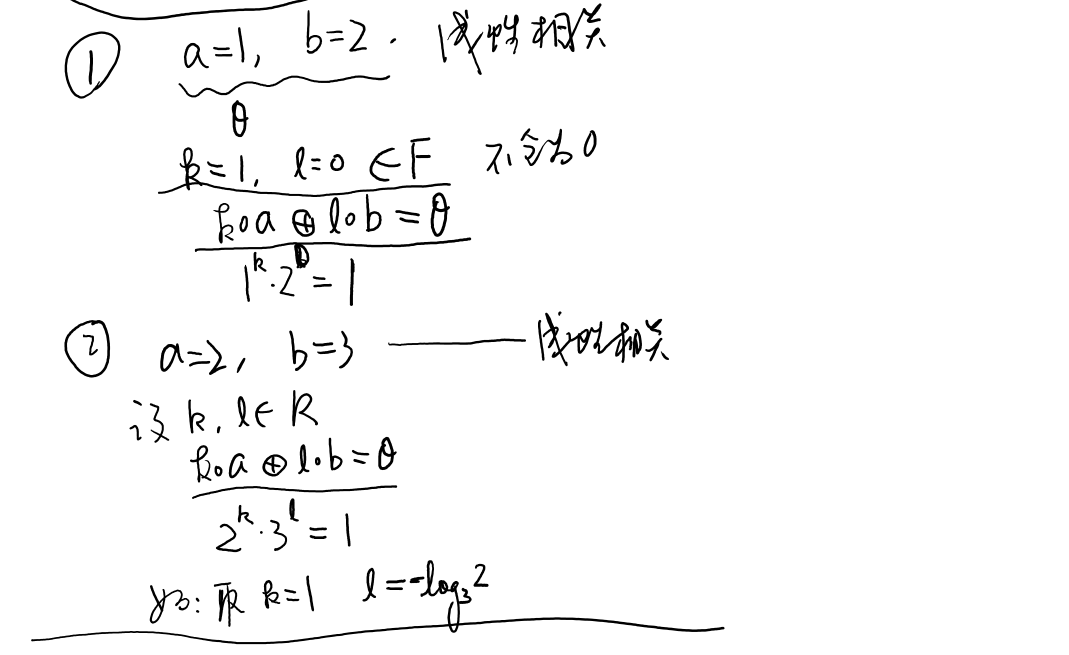 ① a=1, b=2. 线性相关
θ
k=1, l=0 ∈F 不全为0
k∘a ⊕ l∘b = θ
1^k·2^l = 1
② a=2, b=3 —— 线性相关
设 k, l∈R
k∘a ⊕ l∘b = θ
2^k·3^l = 1
如: 取 k=1 l=-log₃2